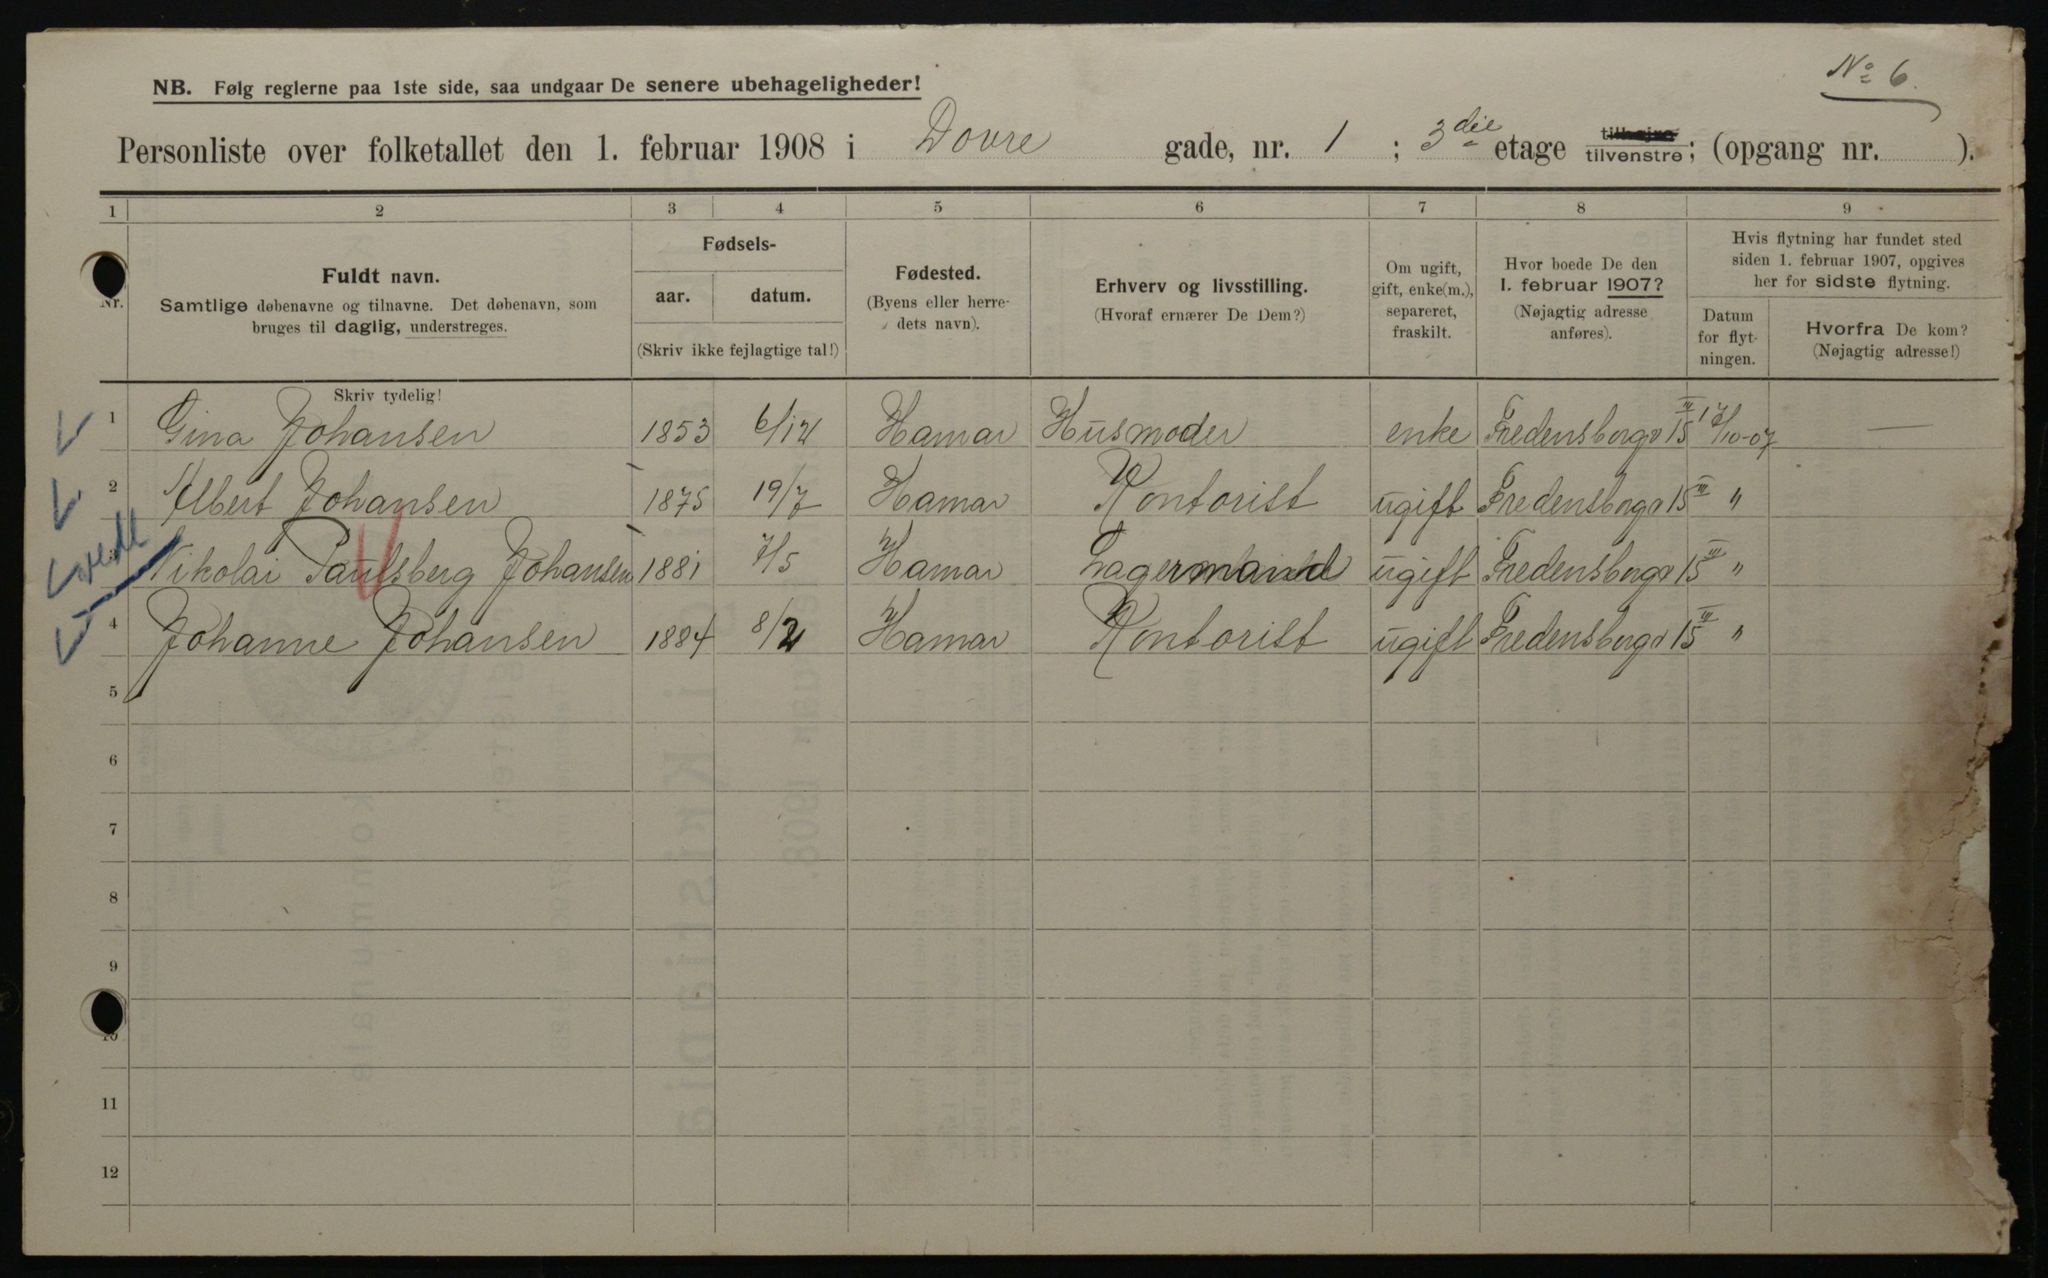 No 6.
NB. Følg reglerne paa 1ste side, saa undgaar De senere ubehageligheder!
Personliste over folketallet den 1. februar 1908 i Dovre gade, nr. 1 ; 3die etage tilhøjre tilvenstre; (opgang nr. ).
1 2 3 4 5 6 7 8 9
Nr.
Fuldt navn.
Samtlige døbenavne og tilnavne. Det døbenavn, som
bruges til daglig, understreges.
Fødsels-
aar. datum.
(Skriv ikke fejlagtige tal!)
Fødested.
(Byens eller herre-
dets navn).
Erhverv og livsstilling.
(Hvoraf ernærer De Dem?)
Om ugift,
gift, enke(m.),
separeret,
fraskilt.
Hvor boede De den
1. februar 1907?
(Nøjagtig adresse
anføres).
Hvis flytning har fundet sted
siden 1. februar 1907, opgives
her for sidste flytning.
Datum
for flyt-
ningen.
Hvorfra De kom?
(Nøjagtig adresse!)
Skriv tydelig!
1 Gina Johansen 1853 6/12 Hamar Husmoder enke Fredensborgv 15 III 17/10-07 —
2 Albert Johansen 1875 19/7 Hamar Kontorist ugift Fredensborgv 15 III "
3 Nikolai Paulsberg Johansen 1881 7/5 Hamar Lagermand ugift Fredensborgv 15 III "
4 Johanne Johansen 1884 8/2 Hamar Kontorist ugift Fredensborgv 15 III "
5
6
7
8
9
10
11
12